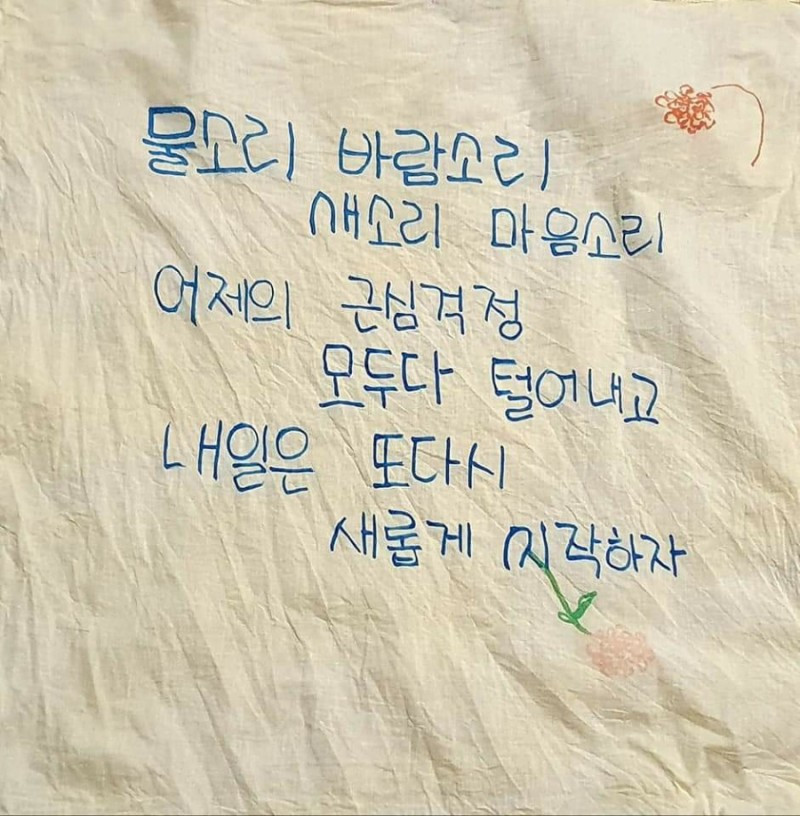 물소리 바람소리
새소리 마음소리
어제의 근심걱정
모두다 털어내고
내일은 또다시
새롭게 시작하자